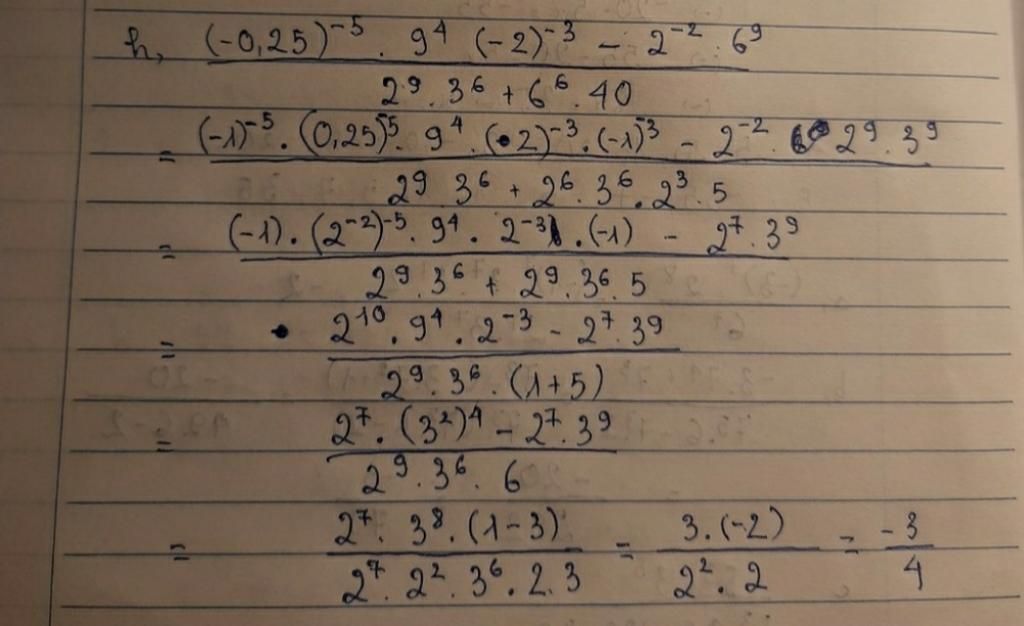 h, (-0,25)⁻⁵ . 9⁴ (-2)⁻³ - 2⁻² . 6⁹
2⁹ . 3⁶ + 6⁶ . 40
= (-1)⁻⁵ . (0,25)⁻⁵ . 9⁴ . (2)⁻³ . (-1)⁻³ - 2⁻² . 2⁹ . 3⁹
2⁹ . 3⁶ + 2⁶ . 3⁶ . 2³ . 5
= (-1) . (2⁻²)⁻⁵ . 9⁴ . 2⁻³ . (-1) - 2⁷ . 3⁹
2⁹ . 3⁶ + 2⁹ . 3⁶ . 5
= 2¹⁰ . 9⁴ . 2⁻³ - 2⁷ . 3⁹
2⁹ . 3⁶ . (1+5)
= 2⁷ . (3²)⁴ - 2⁷ . 3⁹
2⁹ . 3⁶ . 6
= 2⁷ . 3⁸ . (1-3) = 3 . (-2) = -3
2⁷ . 2² . 3⁶ . 2 . 3 2² . 2 4